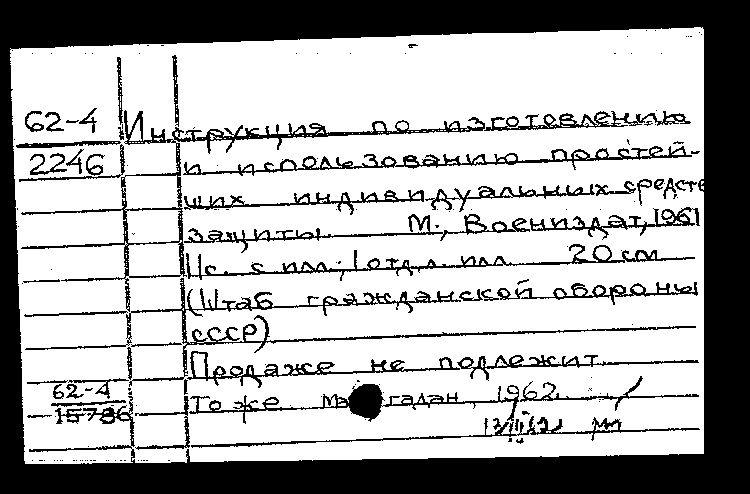 62-4 Инструкция по изготовлению
2246 и использованию простей-
ших индивидуальных средств
защиты. М., Воениздат, 1961
11с. с илл.; 1 отд. л. илл. 20 см
(Штаб гражданской обороны
СССР)
Продаже не подлежит.
62-4
15786
То же Магадан, 1962.